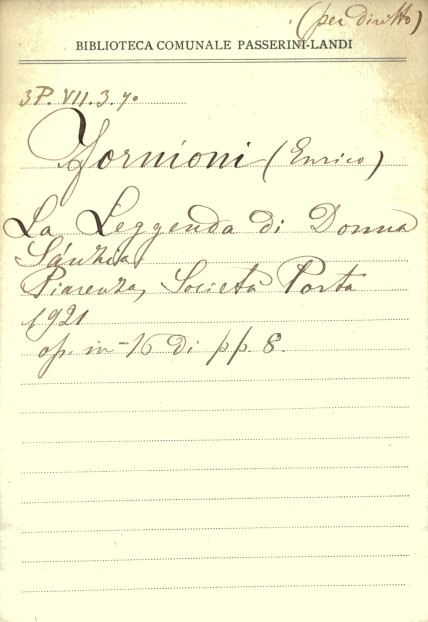 (per diritto)
BIBLIOTECA COMUNALE PASSERINI-LANDI
3P. VII. 3. 70
Fornioni (Enrico)
La Leggenda di Donna
Sánzia
Piacenza, Società Porta
1921
op. in-16 di pp. 8.